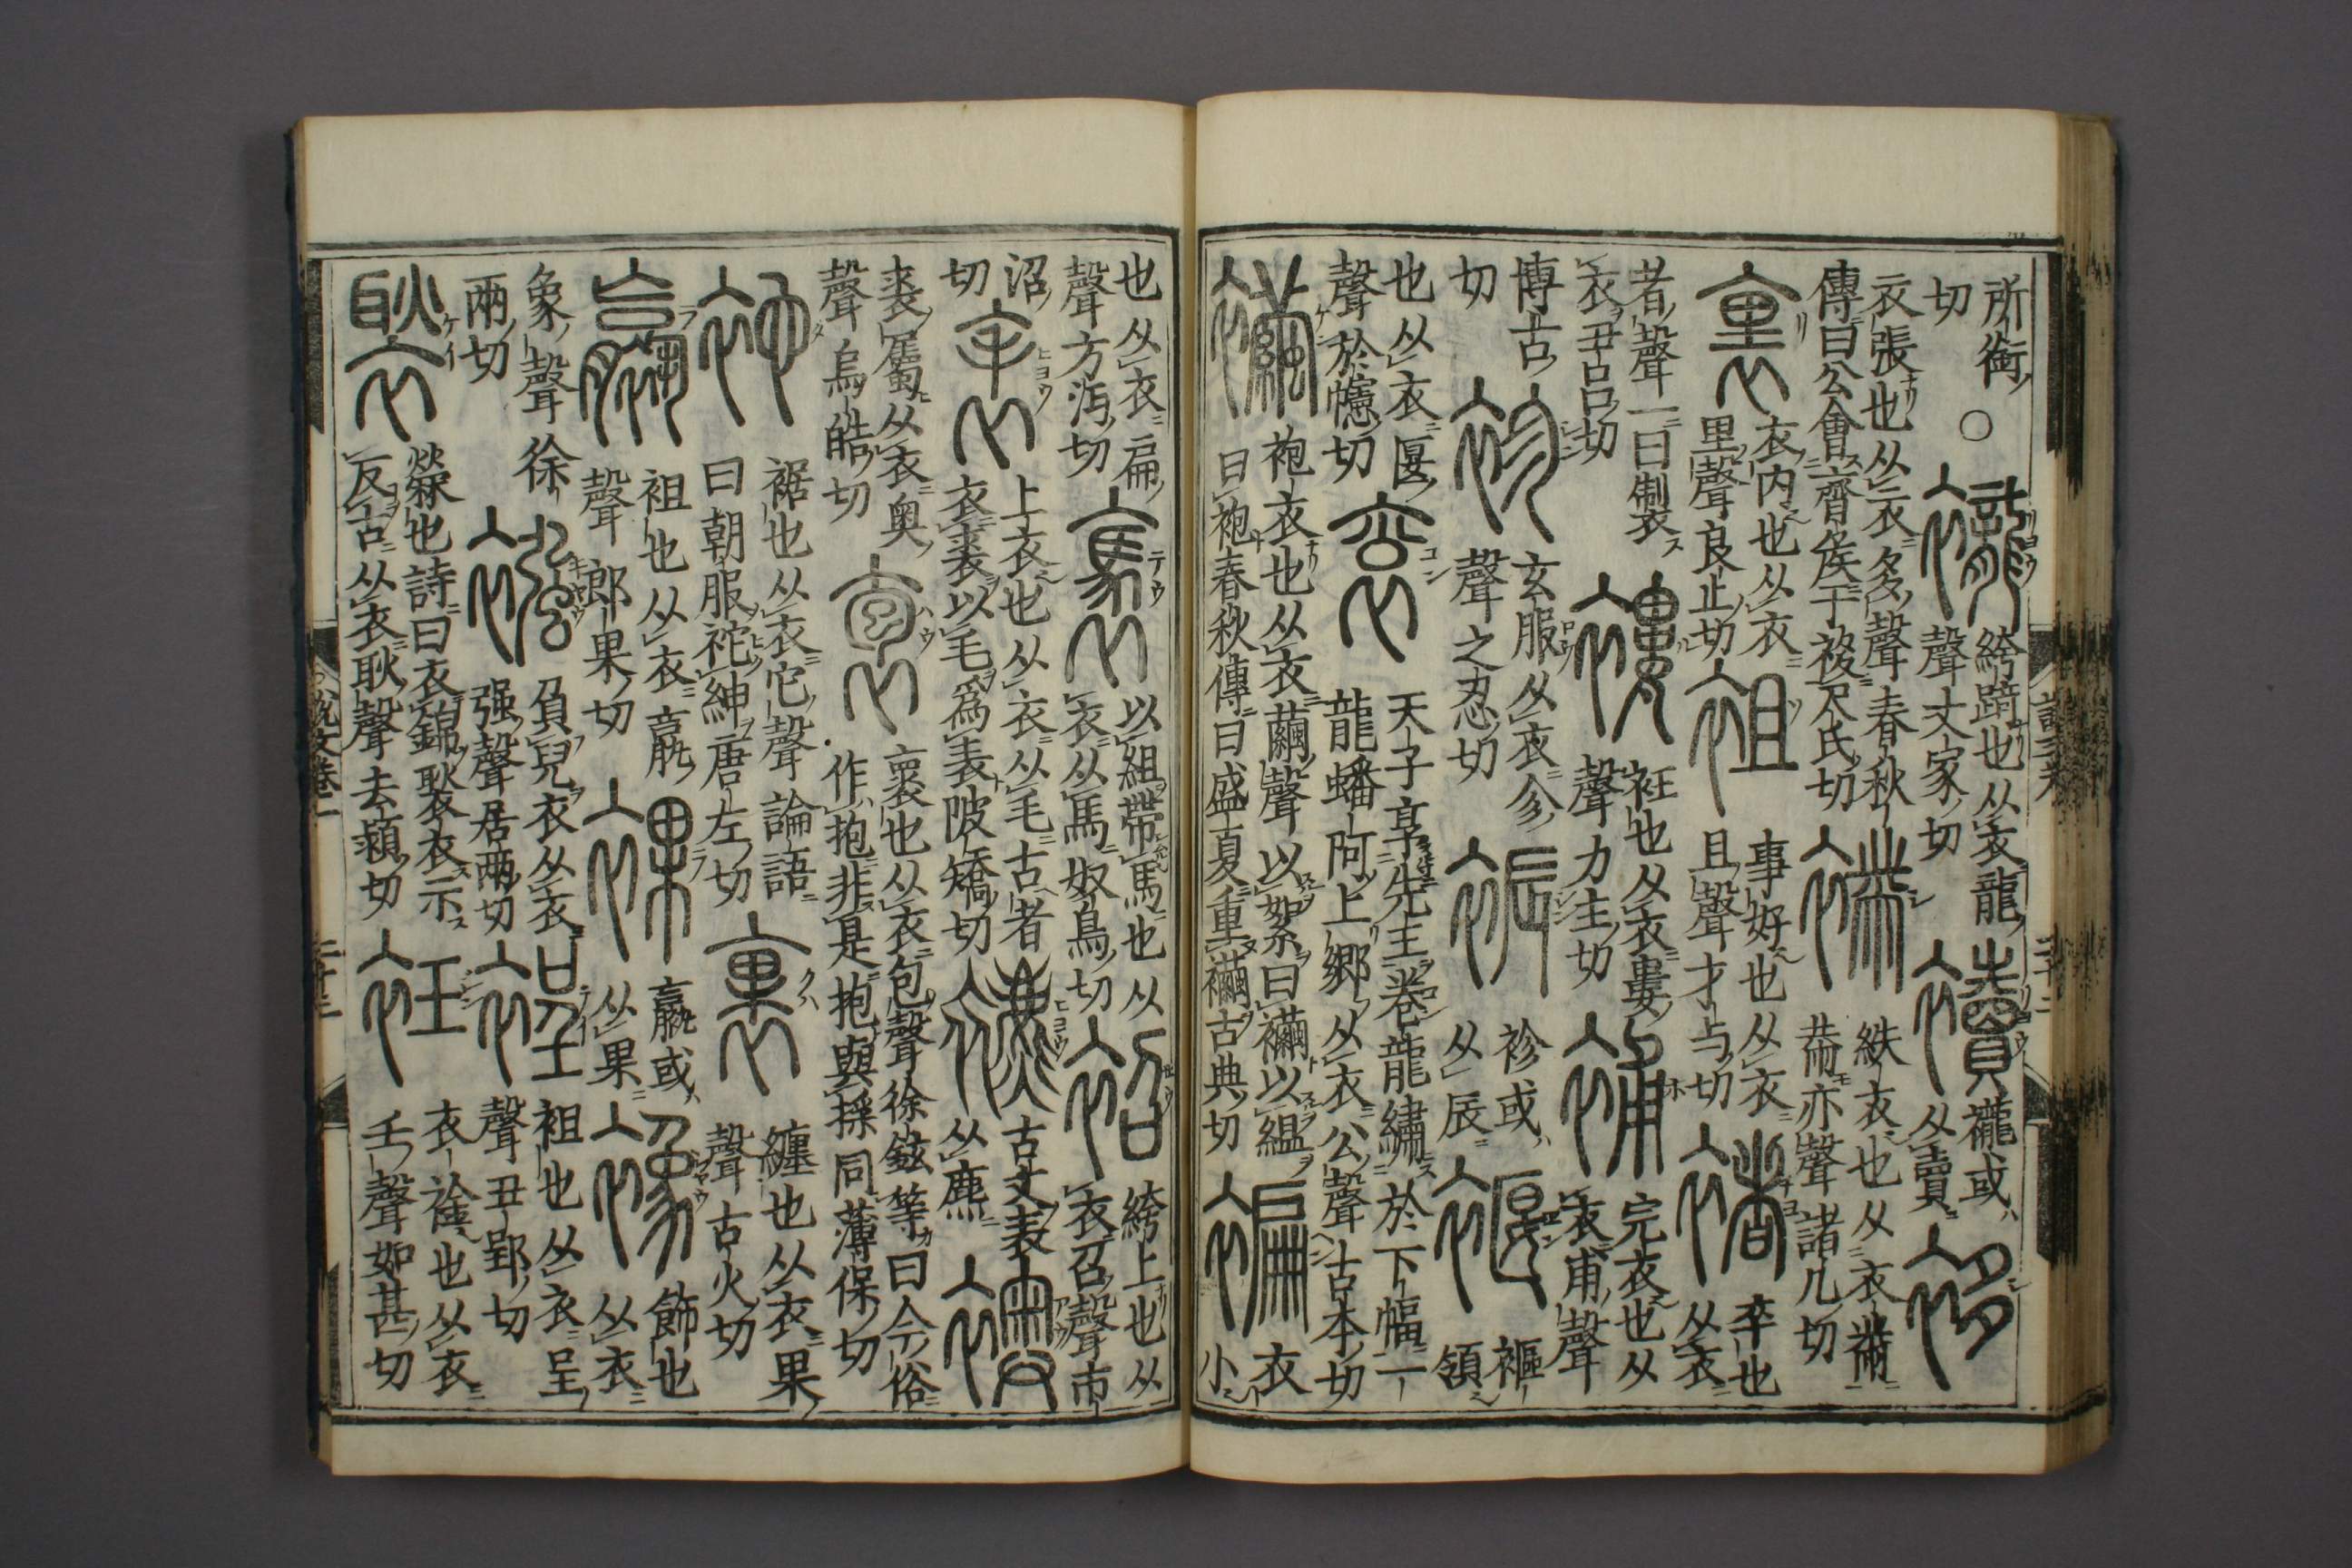 所銜
切
○
襱
絝踦也从衣龍
聲丈冢切
襩
襱或
从賣
袳
衣張也从衣多聲春秋
傳曰公會齊矦于袲尺氏切
黹
紩衣也从衣黹
黹亦聲諸几切
裏
衣内也从衣
里聲良止切
袓
事好也从衣
且聲才与切
褚
卒也
从衣
者聲一曰製
衣丑呂切
褸
衽也从衣婁
聲力主切
補
完衣也从
衣甫聲
博古
切
袗
玄服从衣㐱
聲之忍切
裖
袗或
从辰
褗
褔
領
也从衣匽
聲於幰切
袞
天子享先王卷龍繡於下幅一
龍蟠阿上鄉从衣公聲古本切
襺
袍衣也从衣繭聲以絮曰襺以緼
曰袍春秋傳曰盛夏重襺古典切
褊
衣
小
也从衣扁
聲方沔切
褭
以組帶馬也从
衣从馬奴鳥切
袑
絝上也从
衣召聲市
沼
切
表
上衣也从衣从毛古者
衣裘以毛爲表陂矯切
古文表
从麃
襖
裘屬从衣奧
聲烏皓切
袌
褱也从衣包聲徐鉉等曰今俗
作抱非是抱與捊同薄保切
袉
裾也从衣它聲論語
曰朝服袉紳唐左切
裹
纏也从衣果
聲古火切
臝
袒也从衣𦝠
聲郎果切
裸
臝或
从果
襐
飾也
从衣
象聲徐
兩切
襁
負兒衣从衣
强聲居兩切
裎
袒也从衣呈
聲丑郢切
褧
檾也詩曰衣錦褧衣示
反古从衣耿聲去潁切
衽
衣䘳也从衣
壬聲如甚切